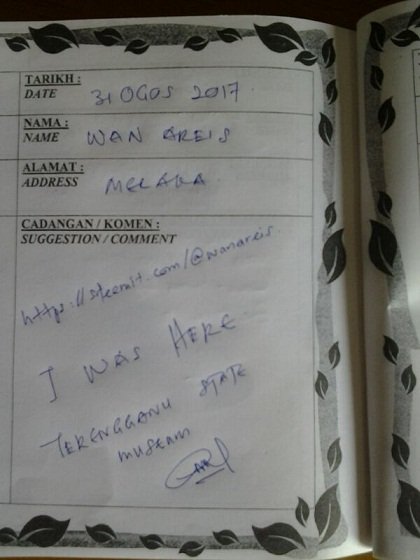 TARIKH :
DATE 31 OGOS 2017
NAMA :
NAME WAN AREIS
ALAMAT :
ADDRESS MELAKA
CADANGAN / KOMEN :
SUGGESTION / COMMENT
https://steemit.com/@wanareis
I WAS HERE
TERENGGANU STATE
MUSEUM